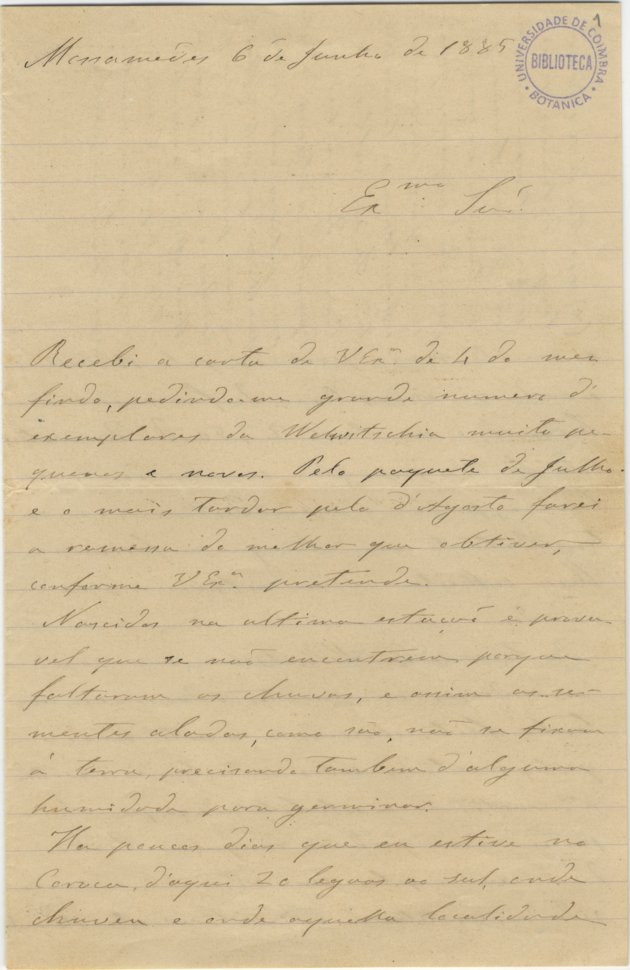 1
UNIVERSIDADE DE COIMBRA
BIBLIOTECA
BOTANICA
Mossamedes 6 de Junho de 1885
Exmo Snr.
Recebi a carta de VExa. de 4 do mez
findo, pedindo-me grande numero d'
exemplares da Welwitschia muito pe-
quenos e novos. Pelo paquete de Julho
e o mais tardar pelo d'Agosto farei
a remessa do melhor que obtiver,
conforme VExa. pretende.
Nascidos na ultima estação é prova-
vel que se não encontrem, porque
faltaram as chuvas, e assim as se-
mentes aladas, como são, não se fixam
á terra, precisando tambem d'alguma
humidade para germinar.
Ha poucos dias que eu estive no
Coroca, d'aqui 20 leguas ao sul, onde
choveu e onde aquella localidade